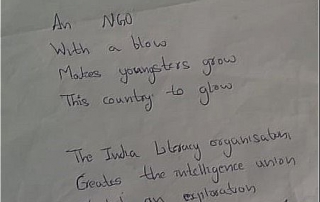 An NGO
With a blow
Makes youngsters grow
This country to glow
The India Literacy organisation,
Creates the intelligence union
an exploration